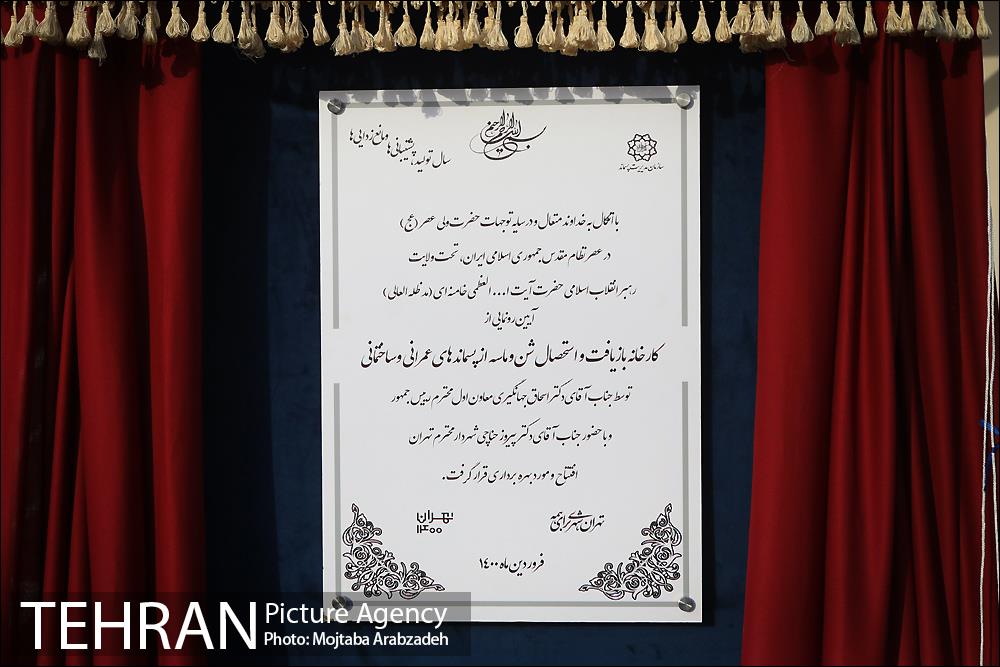 بسم الله الرحمن الرحیم
سال تولید؛ پشتیبانی ها و مانع زدایی ها
سازمان مدیریت پسماند
با اتکال به خداوند متعال و در سایه توجهات حضرت ولی عصر (عج)
در عصر نظام مقدس جمهوری اسلامی ایران، تحت ولایت
رهبر انقلاب اسلامی حضرت آیت ا... العظمی خامنه ای (مد ظله العالی)
آیین رونمایی از
کارخانه بازیافت و استحصال شن و ماسه از پسماندهای عمرانی و ساختمانی
توسط جناب آقای دکتر اسحاق جهانگیری معاون اول محترم رییس جمهور
و با حضور جناب آقای دکتر پیروز حناچی شهردار محترم تهران
افتتاح و مورد بهره برداری قرار گرفت.
تهران شهری برای همه
تهران ۱۴۰۰
فروردین ماه ۱۴۰۰
TEHRAN Picture Agency
Photo: Mojtaba Arabzadeh